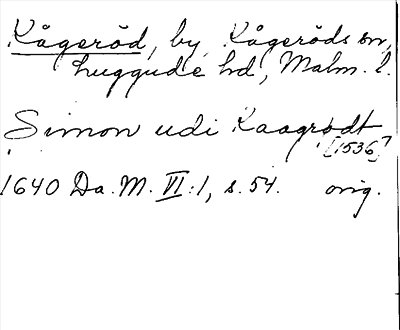 Kågeröd, by, Kågeröds sn,
Luggude hd, Malm. l.
Simon udi Kaagrødt
[1536]
1640 Da. M. VI:1, s. 54. orig.